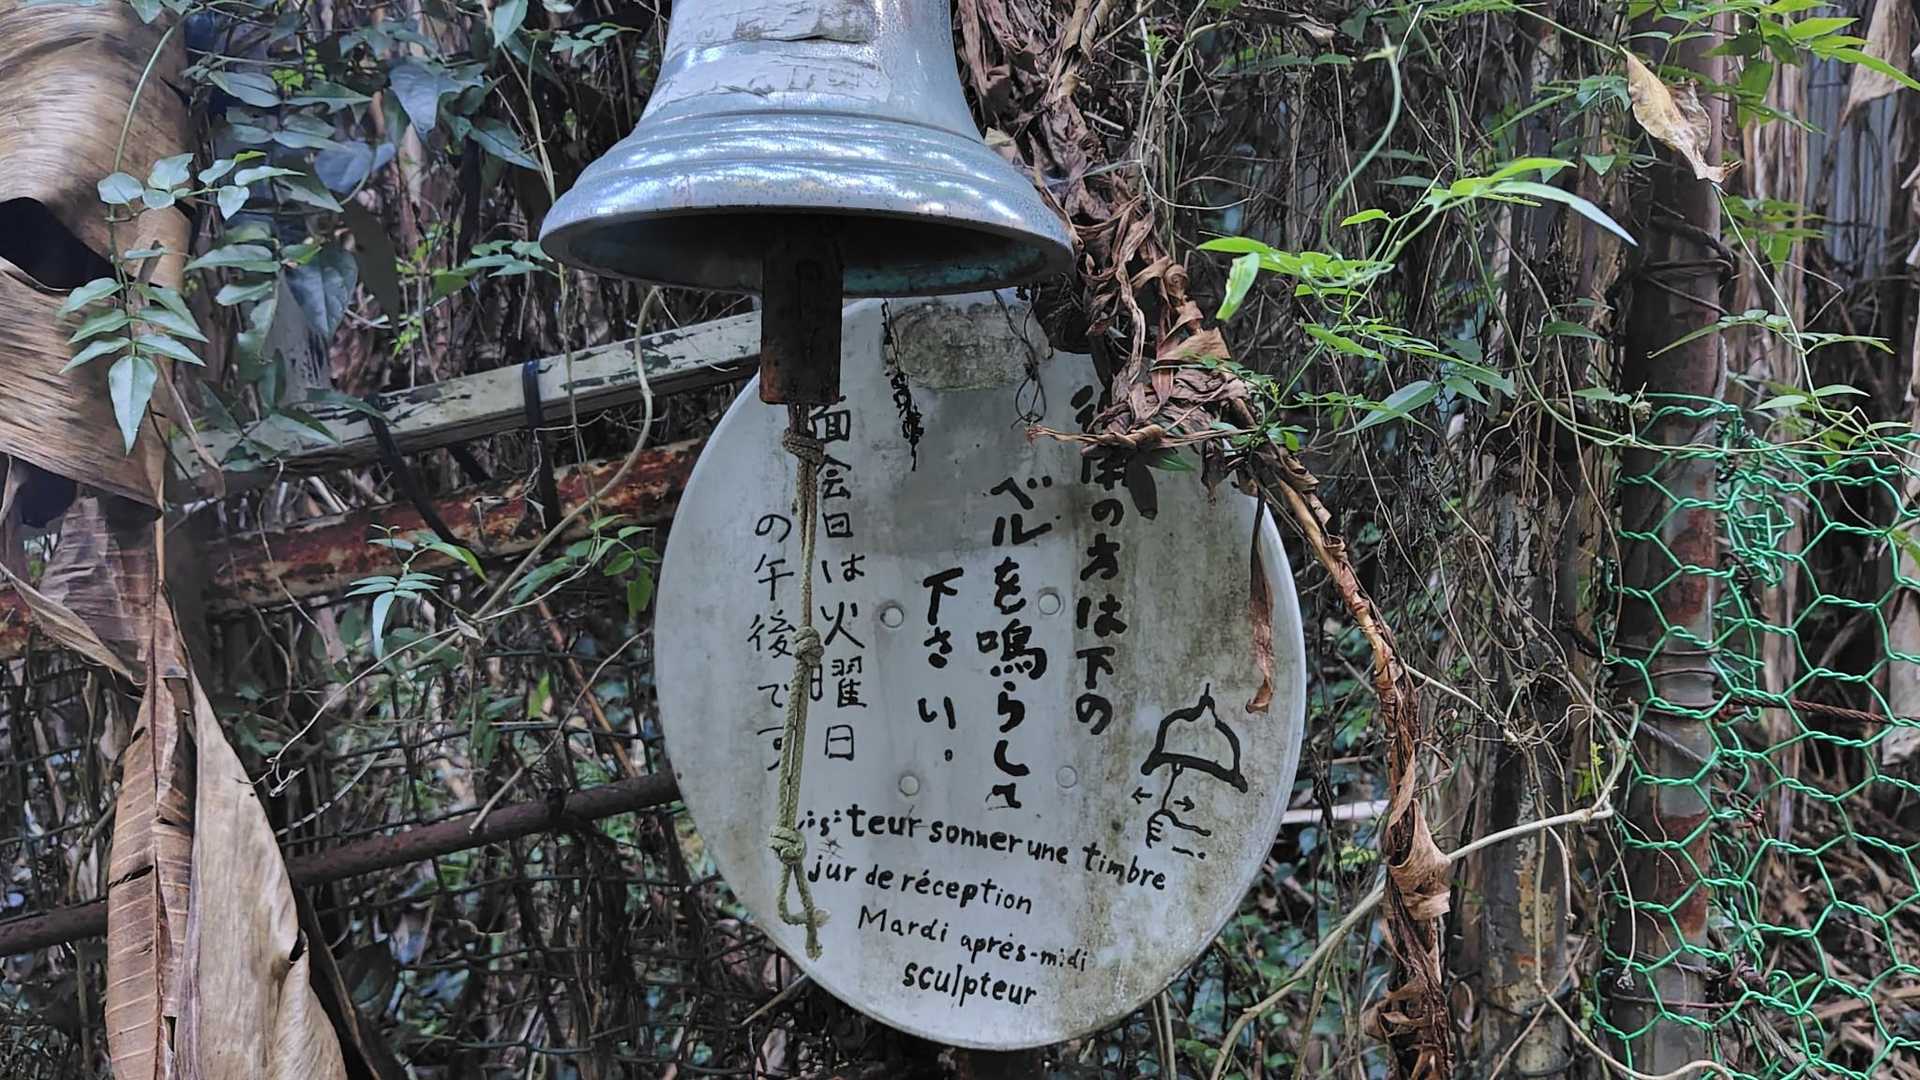 の方は下の
ベルを鳴らして
下さい。
面会日は火曜日
の午後です
teur sonner une timbre
jur de réception
Mardi après-midi
sculpteur